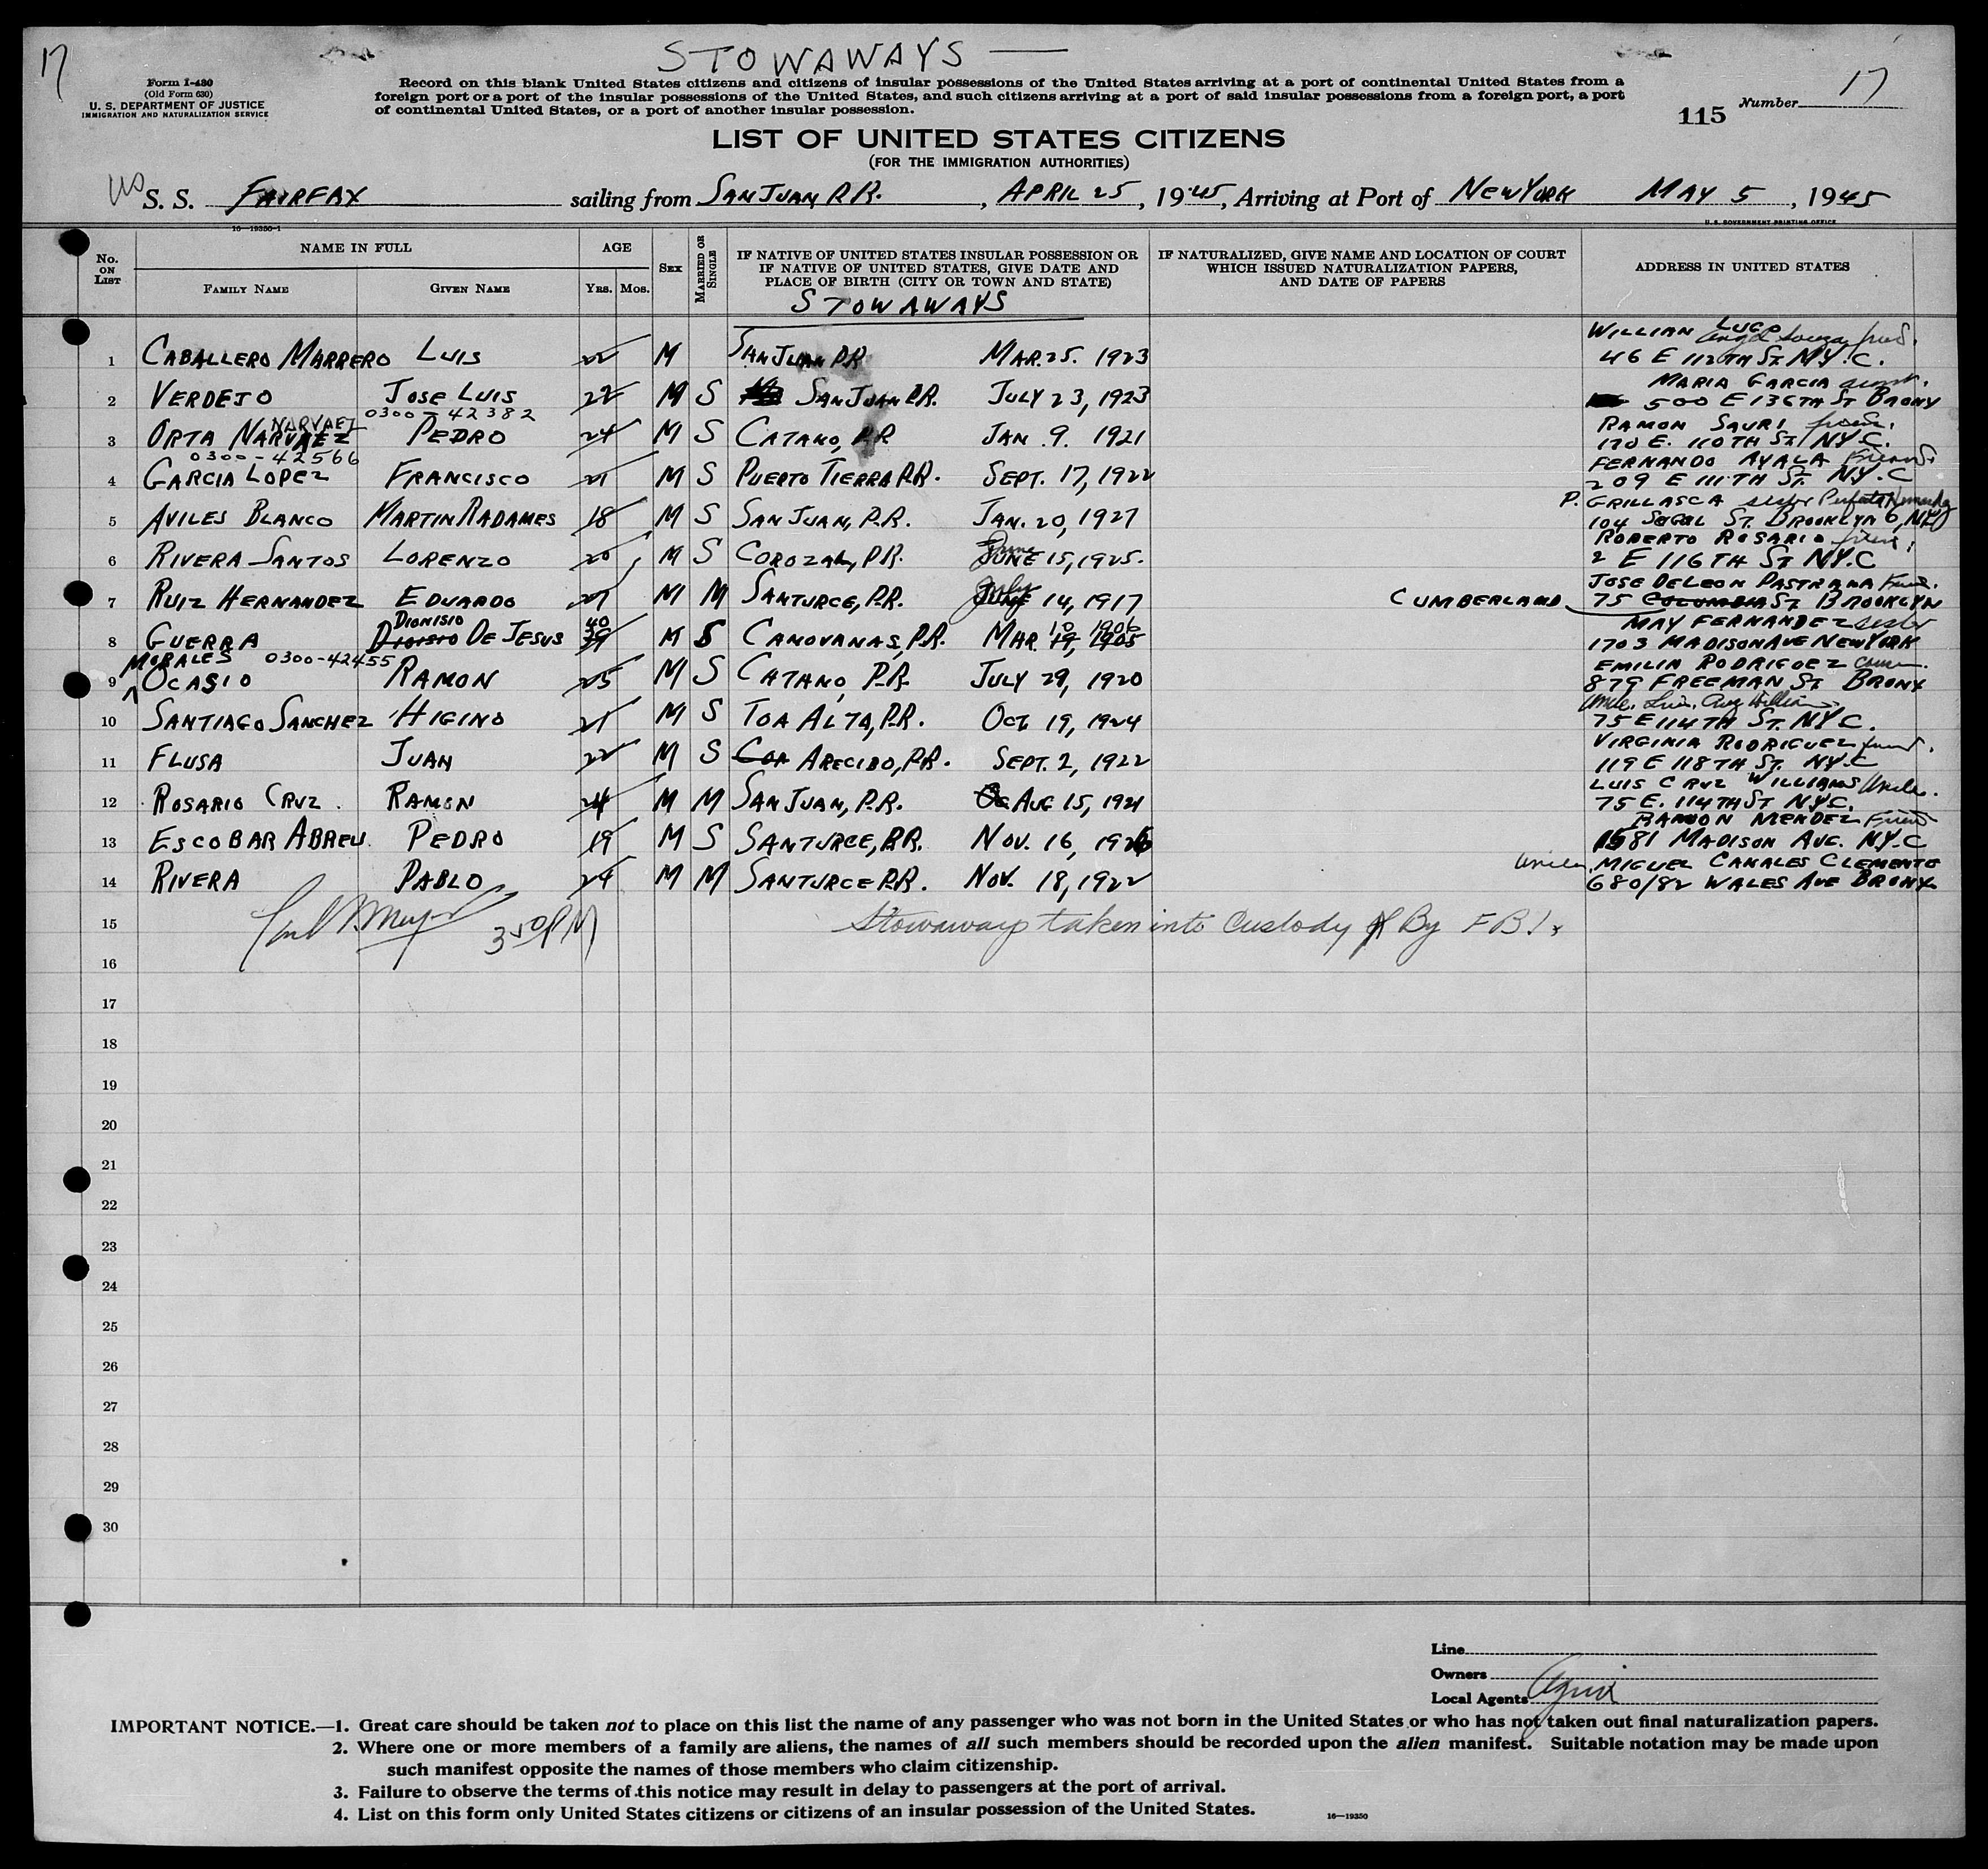 17
STOWAWAYS —
Form I-430
(Old Form 630)
U. S. DEPARTMENT OF JUSTICE
IMMIGRATION AND NATURALIZATION SERVICE
Record on this blank United States citizens and citizens of insular possessions of the United States arriving at a port of continental United States from a
foreign port or a port of the insular possessions of the United States, and such citizens arriving at a port of said insular possessions from a foreign port, a port
of continental United States, or a port of another insular possession.
115 Number 17
LIST OF UNITED STATES CITIZENS
(FOR THE IMMIGRATION AUTHORITIES)
US S. S. FAIRFAX sailing from SAN JUAN P.R. , APRIL 25 , 1945, Arriving at Port of NEW YORK MAY 5 , 1945
16—19350-1
U. S. GOVERNMENT PRINTING OFFICE
No. ON LIST
NAME IN FULL
FAMILY NAME
GIVEN NAME
AGE
YRS.
MOS.
SEX
MARRIED OR SINGLE
IF NATIVE OF UNITED STATES INSULAR POSSESSION OR
IF NATIVE OF UNITED STATES, GIVE DATE AND
PLACE OF BIRTH (CITY OR TOWN AND STATE)
STOWAWAYS
IF NATURALIZED, GIVE NAME AND LOCATION OF COURT
WHICH ISSUED NATURALIZATION PAPERS,
AND DATE OF PAPERS
ADDRESS IN UNITED STATES
WILLIAN LUGO
1 CABALLERO MARRERO LUIS 22 M SAN JUAN P.R. MAR. 25. 1923 46 E 112TH ST. N.Y.C.
MARIA GARCIA
2 VERDEJO JOSE LUIS 22 M S SAN JUAN P.R. JULY 23, 1923 500 E 136TH ST BRONX
0300-42382
NARVAEZ
RAMON SAURI
3 ORTA NARVAEZ PEDRO 24 M S CATANO, P.R JAN. 9. 1921 170 E. 110TH ST. N.Y.C.
0300-42566
FERNANDO AYALA Friend
4 GARCIA LOPEZ FRANCISCO 21 M S PUERTO TIERRA P.R. SEPT. 17, 1922 209 E 111TH ST. N.Y.C
P. GRILLASCA sister
5 AVILES BLANCO MARTIN RADAMES 18 M S SAN JUAN, P.R. JAN. 20, 1927 104 ST. BROOKLYN 6, N.Y.
ROBERTO ROSARIO
June
6 RIVERA SANTOS LORENZO 20 M S COROZAL, P.R. JUNE 15, 1925. 2 E 116TH ST N.Y.C
JOSE DELEON PASTRANA
July
7 RUIZ HERNANDEZ EDUARDO 27 M M SANTURCE, P.R. JUNE 14, 1917 CUMBERLAND 75 COLUMBIA ST BROOKLYN
MAY FERNANDEZ sister
DIONISIO 40 10 1906
8 GUERRA DIONISO DE JESUS 39 M S CANOVANAS, P.R. MAR. 19, 1905 1703 MADISON AVE NEW YORK
MORALES 0300-42455
EMILIA RODRIGUEZ
9 OCASIO RAMON 25 M S CATANO, P.R. JULY 29, 1920 879 FREEMAN ST BRONX
10 SANTIAGO SANCHEZ HIGINO 21 M S TOA ALTA, P.R. OCT. 19, 1924 75 E 114TH ST. N.Y.C.
VIRGINIA RODRIGUEZ
11 FLUSA JUAN 22 M S COA ARECIBO, P.R. SEPT. 2, 1922 119 E 118TH ST. N.Y.C
LUIS CRUZ WILLIAMS Uncle.
12 ROSARIO CRUZ. RAMON 24 M M SAN JUAN, P.R. OC AUG 15, 1921 75 E. 114TH ST N.Y.C.
RAMON MENDEZ Friend
13 ESCOBAR ABREU. PEDRO 19 M S SANTURCE, P.R. NOV. 16, 1926 1681 MADISON AVE. N.Y.C
Uncle MIGUEL CANALES CLEMENTE
14 RIVERA PABLO 24 M M SANTURCE P.R. NOV. 18, 1922 680/82 WALES AVE BRONX
15 350 PM Stowaways taken into Custody By FBI.
16
17
18
19
20
21
22
23
24
25
26
27
28
29
30
Line
Owners
Local Agents
IMPORTANT NOTICE.—1. Great care should be taken not to place on this list the name of any passenger who was not born in the United States or who has not taken out final naturalization papers.
2. Where one or more members of a family are aliens, the names of all such members should be recorded upon the alien manifest. Suitable notation may be made upon
such manifest opposite the names of those members who claim citizenship.
3. Failure to observe the terms of this notice may result in delay to passengers at the port of arrival.
4. List on this form only United States citizens or citizens of an insular possession of the United States.
16—19350